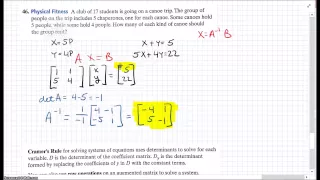 46. Physical Fitness A club of 17 students is going on a canoe trip. The group of
people on the trip includes 5 chaperones, one for each canoe. Some canoes hold
5 people, while some hold 4 people. How many of each kind of canoe should
the group rent?
X = A⁻¹ B
X = 5P
Y = 4P
X + Y = 5
5X + 4Y = 22
A X = B
[1 1 5 4] [x y] = [5 22]
det A = 4-5 = -1
A⁻¹ = 1/-1 [4 -1 -5 1] = [-4 1 5 -1]
Cramer's Rule for solving systems of equations uses determinants to solve for each
variable. D is the determinant of the coefficient matrix. D is the determinant
formed by replacing the coefficients of y in D with the constant terms.
row operations on an augmented matrix to solve a system.